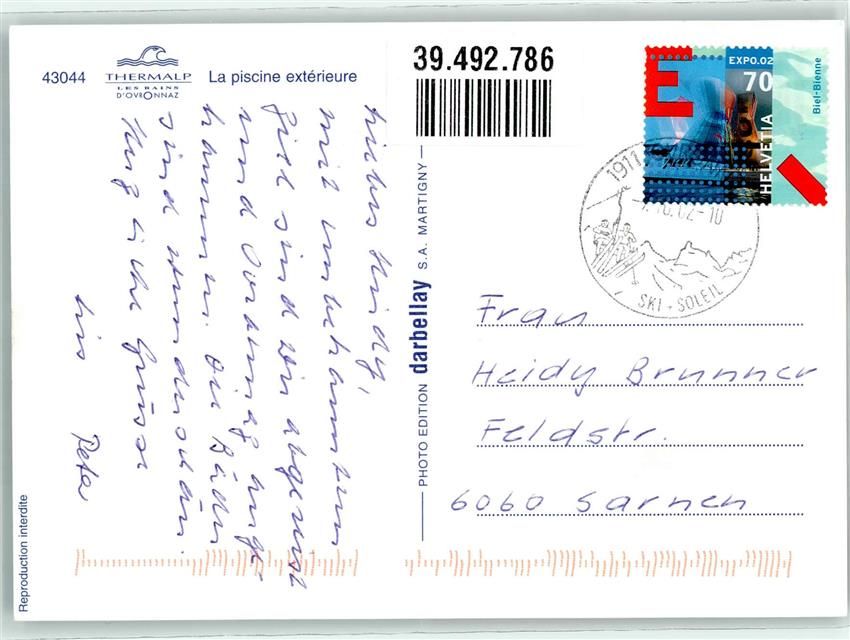 43044
THERMALP
LES BAINS
D'OVRONNAZ
La piscine extérieure
39.492.786
EXPO.02
70
E
HELVETIA
Biel-Bienne
1911
02-10
SKI - SOLEIL
Liebes Heidy,
mit unbekanntem
Ziel sind wir abgereist
und Ovronnaz ange-
kommen. Die Bäder
sind wunderschön.
Herzliche Grüsse
Peter
PHOTO EDITION darbellay S.A. MARTIGNY
Frau
Heidy Brunner
Feldstr.
6060 Sarnen
Reproduction interdite